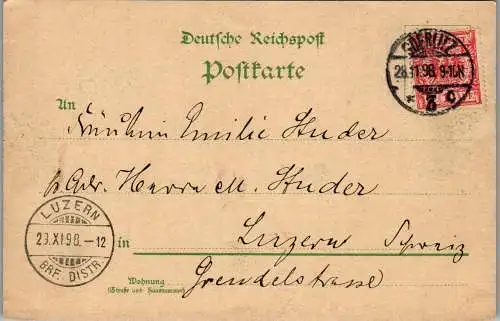 Deutsche Reichspost
Postkarte
GOERLITZ
28.11.98. 9-10N
* 2 c
An
Fräulein Emilie Studer
p. Adr. Herrn M. Studer
LUZERN
29.XI.98.-12
BRF. DISTR.
in Luzern Schweiz
Wohnung
(Straße und Hausnummer)
Grendelstrasse